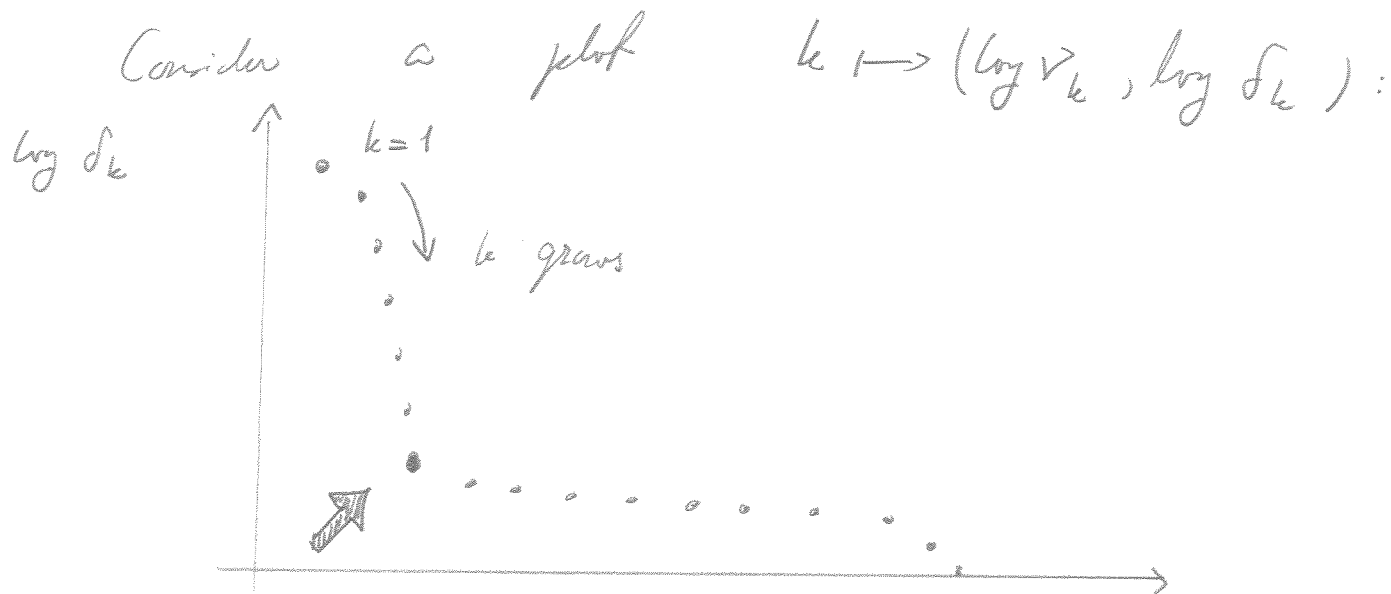 Consider a plot k ↦ (log ν_k, log δ_k):
log δ_k
k = 1
k grows